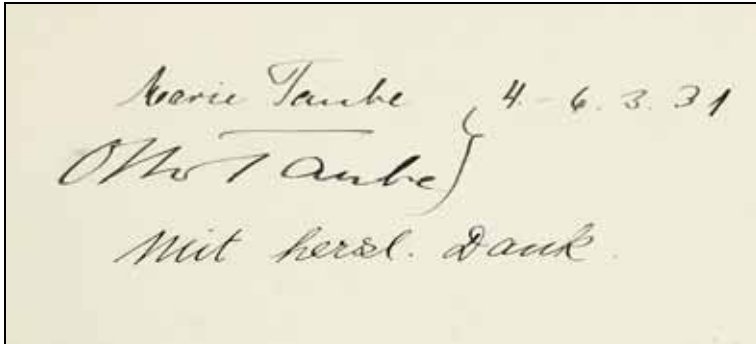 Marie Taube } 4 - 6. 3. 31
Otto Taube
Mit herzl. Dank.